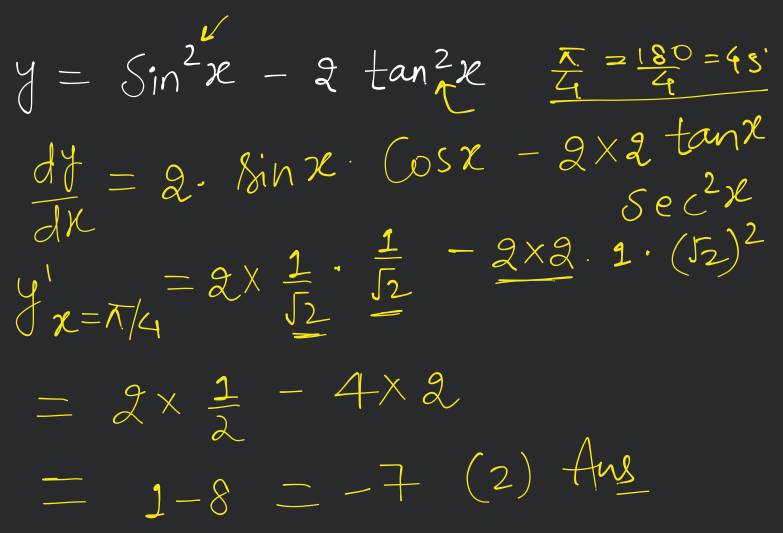 y = Sin²x - 2 tan²x
π/4 = 180/4 = 45°
dy/dx = 2. Sinx. Cosx - 2×2 tanx
Sec²x
y' x=π/4 = 2× 1/√2 . 1/√2 - 2×2 . 1 . (√2)²
= 2× 1/2 - 4×2
= 1-8 = -7 (2) Ans